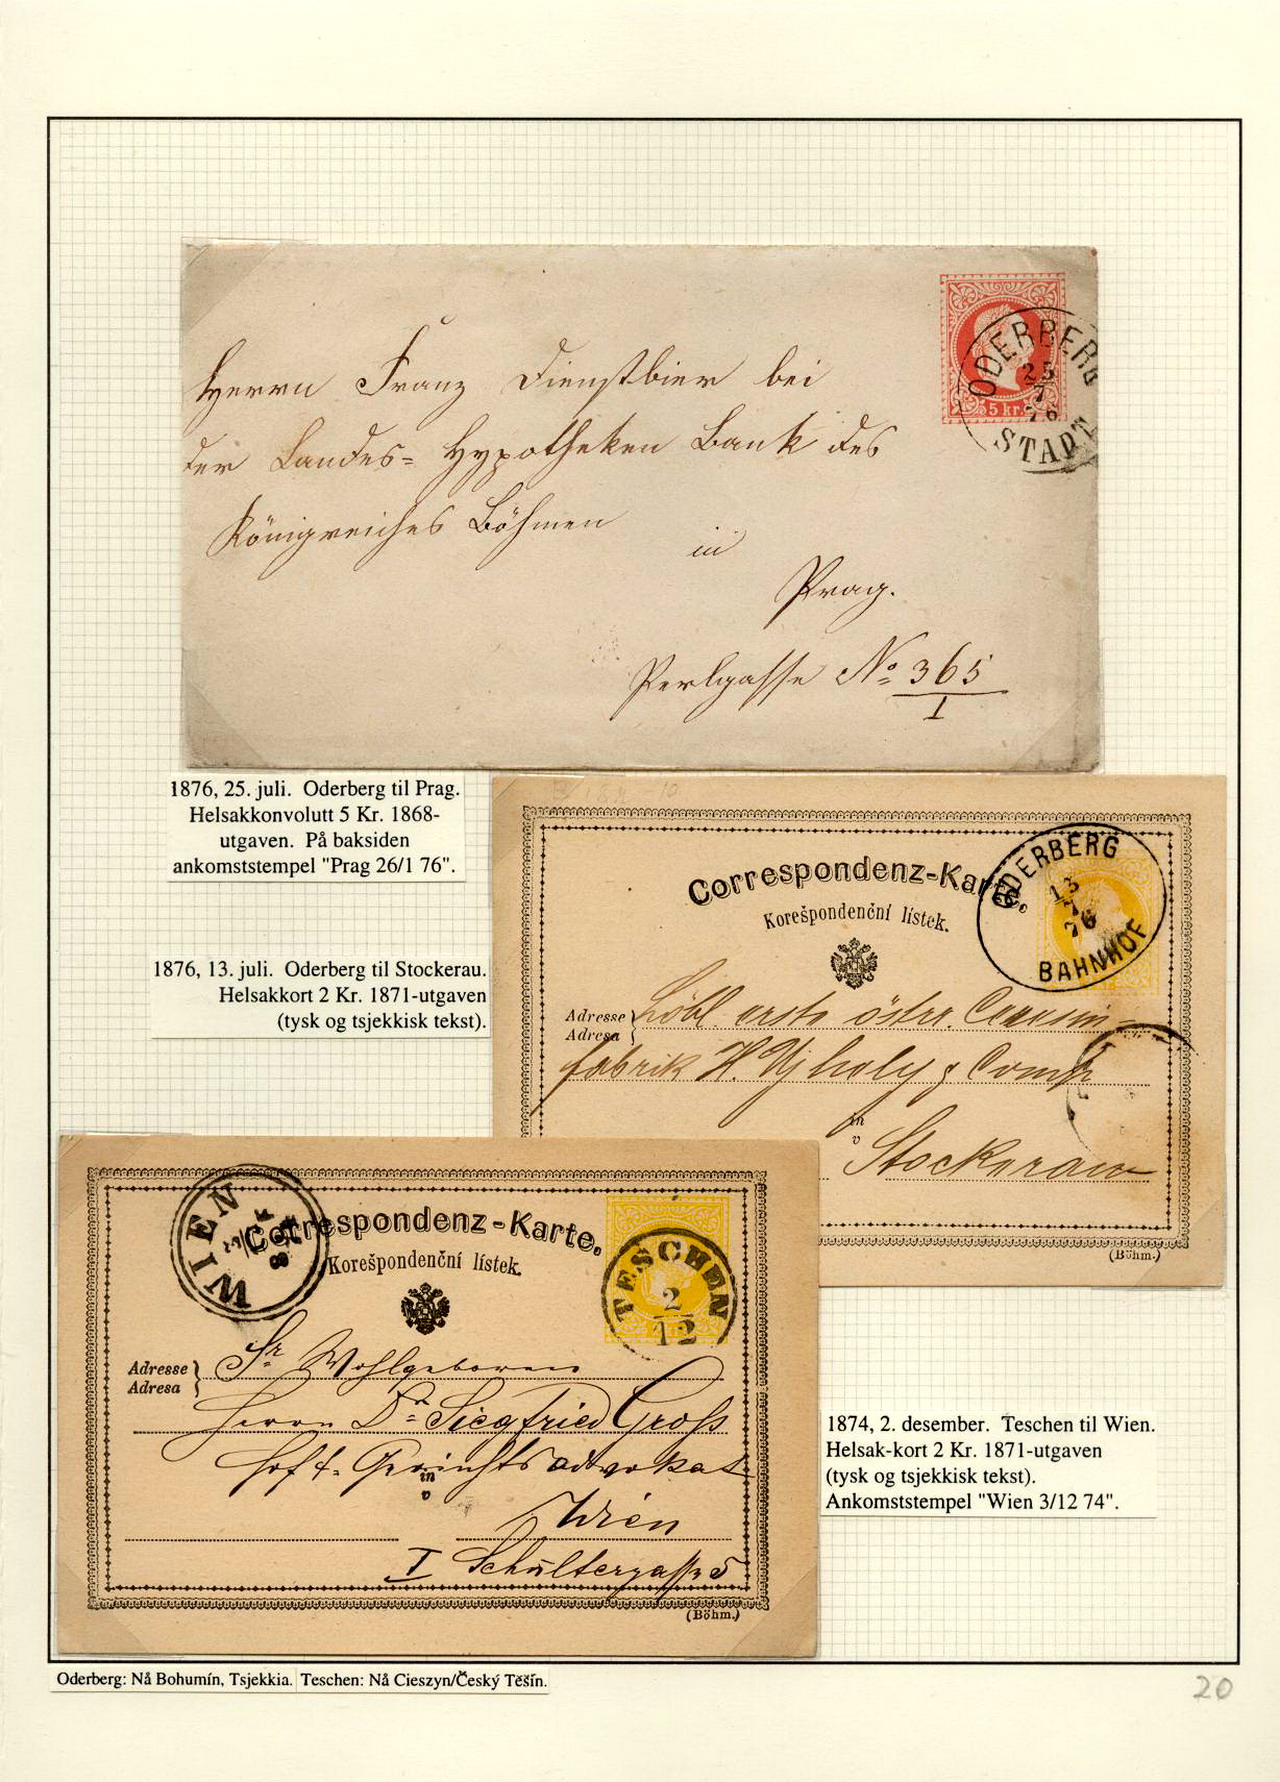 Herrn Franz Dienstbier bei
der Landes= Hypotheken Bank des
Königreiches Böhmen
in
Prag.
Perlgasse No 365
I
5 kr.
ODERBERG
25
7
76
STADT
1876, 25. juli. Oderberg til Prag.
Helsakkonvolutt 5 Kr. 1868-
utgaven. På baksiden
ankomststempel "Prag 26/1 76".
1876, 13. juli. Oderberg til Stockerau.
Helsakkort 2 Kr. 1871-utgaven
(tysk og tsjekkisk tekst).
Correspondenz-Karte.
Korešpondenční lístek.
ODERBERG
13
7
76
BAHNHOF
Adresse
Adresa
Löbl. erste österr.
fabrik H. & Comp
in
v
Stockerau
(Böhm.)
WIEN
Correspondenz-Karte.
Korešpondenční lístek.
TESCHEN
2
12
Adresse
Adresa
Sr Wohlgeboren
Herrn Dr Siegfried Groß
Hof & Gerichtsadvokat
in
v
Wien
I Schultergasse 5
(Böhm.)
1874, 2. desember. Teschen til Wien.
Helsak-kort 2 Kr. 1871-utgaven
(tysk og tsjekkisk tekst).
Ankomststempel "Wien 3/12 74".
Oderberg: Nå Bohumín, Tsjekkia. Teschen: Nå Cieszyn/Český Těšín.
20